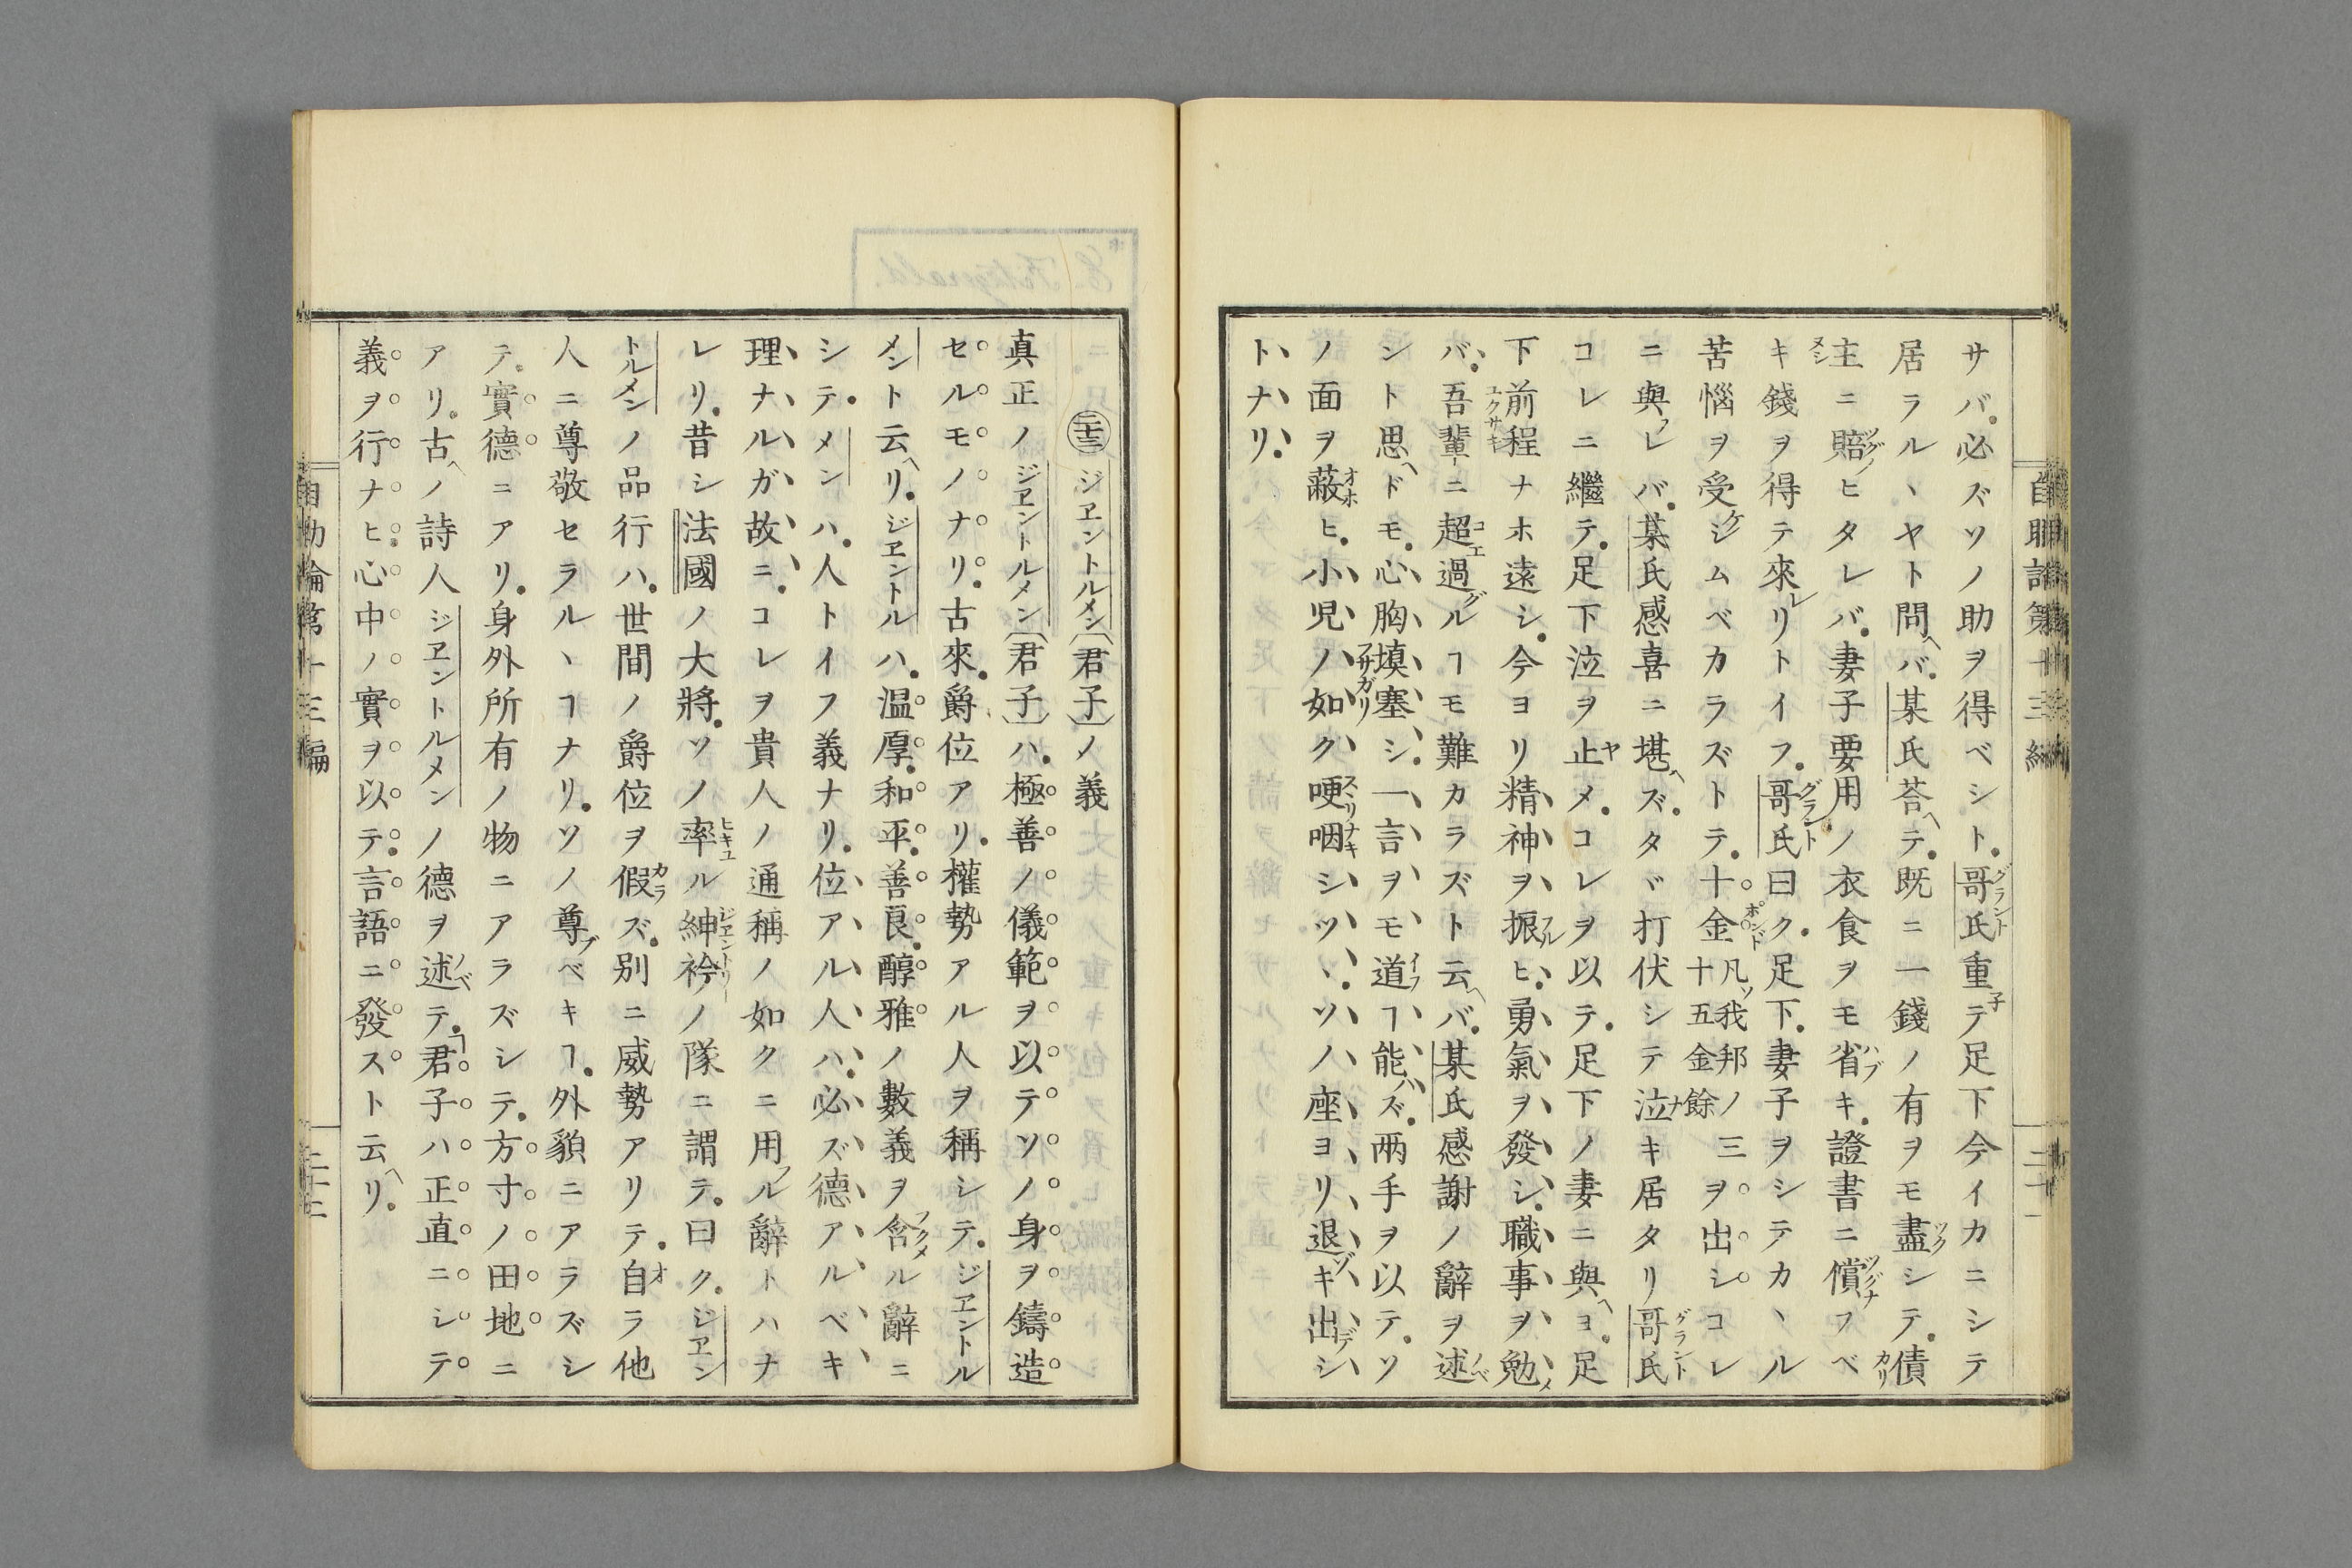 サバ必ズソノ助ヲ得ベシト哥氏重テ足下今イカニシテ
居ラルヽヤト問バ某氏荅テ既ニ一錢ノ有ヲモ盡シテ債
主ニ賠ヒタレバ妻子要用ノ衣食ヲモ省キ證書ニ償フベ
キ錢ヲ得テ來リトイフ哥氏曰ク足下妻子ヲシテカヽル
苦惱ヲ受シムベカラズトテ十金凡我邦ノ三十五金餘ヲ出シコレ
ニ與レバ某氏感喜ニ堪ズタヾ打伏シテ泣キ居タリ哥氏
コレニ繼テ足下泣ヲ止メコレヲ以テ足下ノ妻ニ與ヨ足
下前程ナホ遠シ今ヨリ精神ヲ振ヒ勇氣ヲ發シ職事ヲ勉
バ吾輩ニ超過ルヿモ難カラズト云バ某氏感謝ノ辭ヲ述
ント思ドモ心胸塡塞シ一言ヲモ道ヿ能ズ両手ヲ以テソ
ノ面ヲ蔽ヒ小児ノ如ク哽咽シツヽソノ座ヨリ退キ出シ
トナリ
自助論第十三編
二十一
㊂ジヱントルメン〔君子〕ノ義
真正ノジヱントルメン〔君子〕ハ極善ノ儀範ヲ以テソノ身ヲ鑄造
セルモノナリ古來爵位アリ權勢アル人ヲ稱シテジヱントル
メント云リジヱントルハ溫厚和平善良醇雅ノ數義ヲ含ル辭ニ
シテメンハ人トイフ義ナリ位アル人ハ必ズ德アルベキ
理ナルガ故ニコレヲ貴人ノ通稱ノ如クニ用ル辭トハナ
レリ昔シ法國ノ大將ソノ率ル紳衿ノ隊ニ謂テ曰クジヱン
トルメンノ品行ハ世間ノ爵位ヲ假ズ別ニ威勢アリテ自ラ他
人ニ尊敬セラルヽヿナリソノ尊ベキヿ外貌ニアラズシ
テ實德ニアリ身外所有ノ物ニアラズシテ方寸ノ田地ニ
アリ古ノ詩人ジヱントルメンノ德ヲ述テ君子ハ正直ニシテ
義ヲ行ナヒ心中ノ實ヲ以テ言語ニ發スト云リ
自助論第十三編